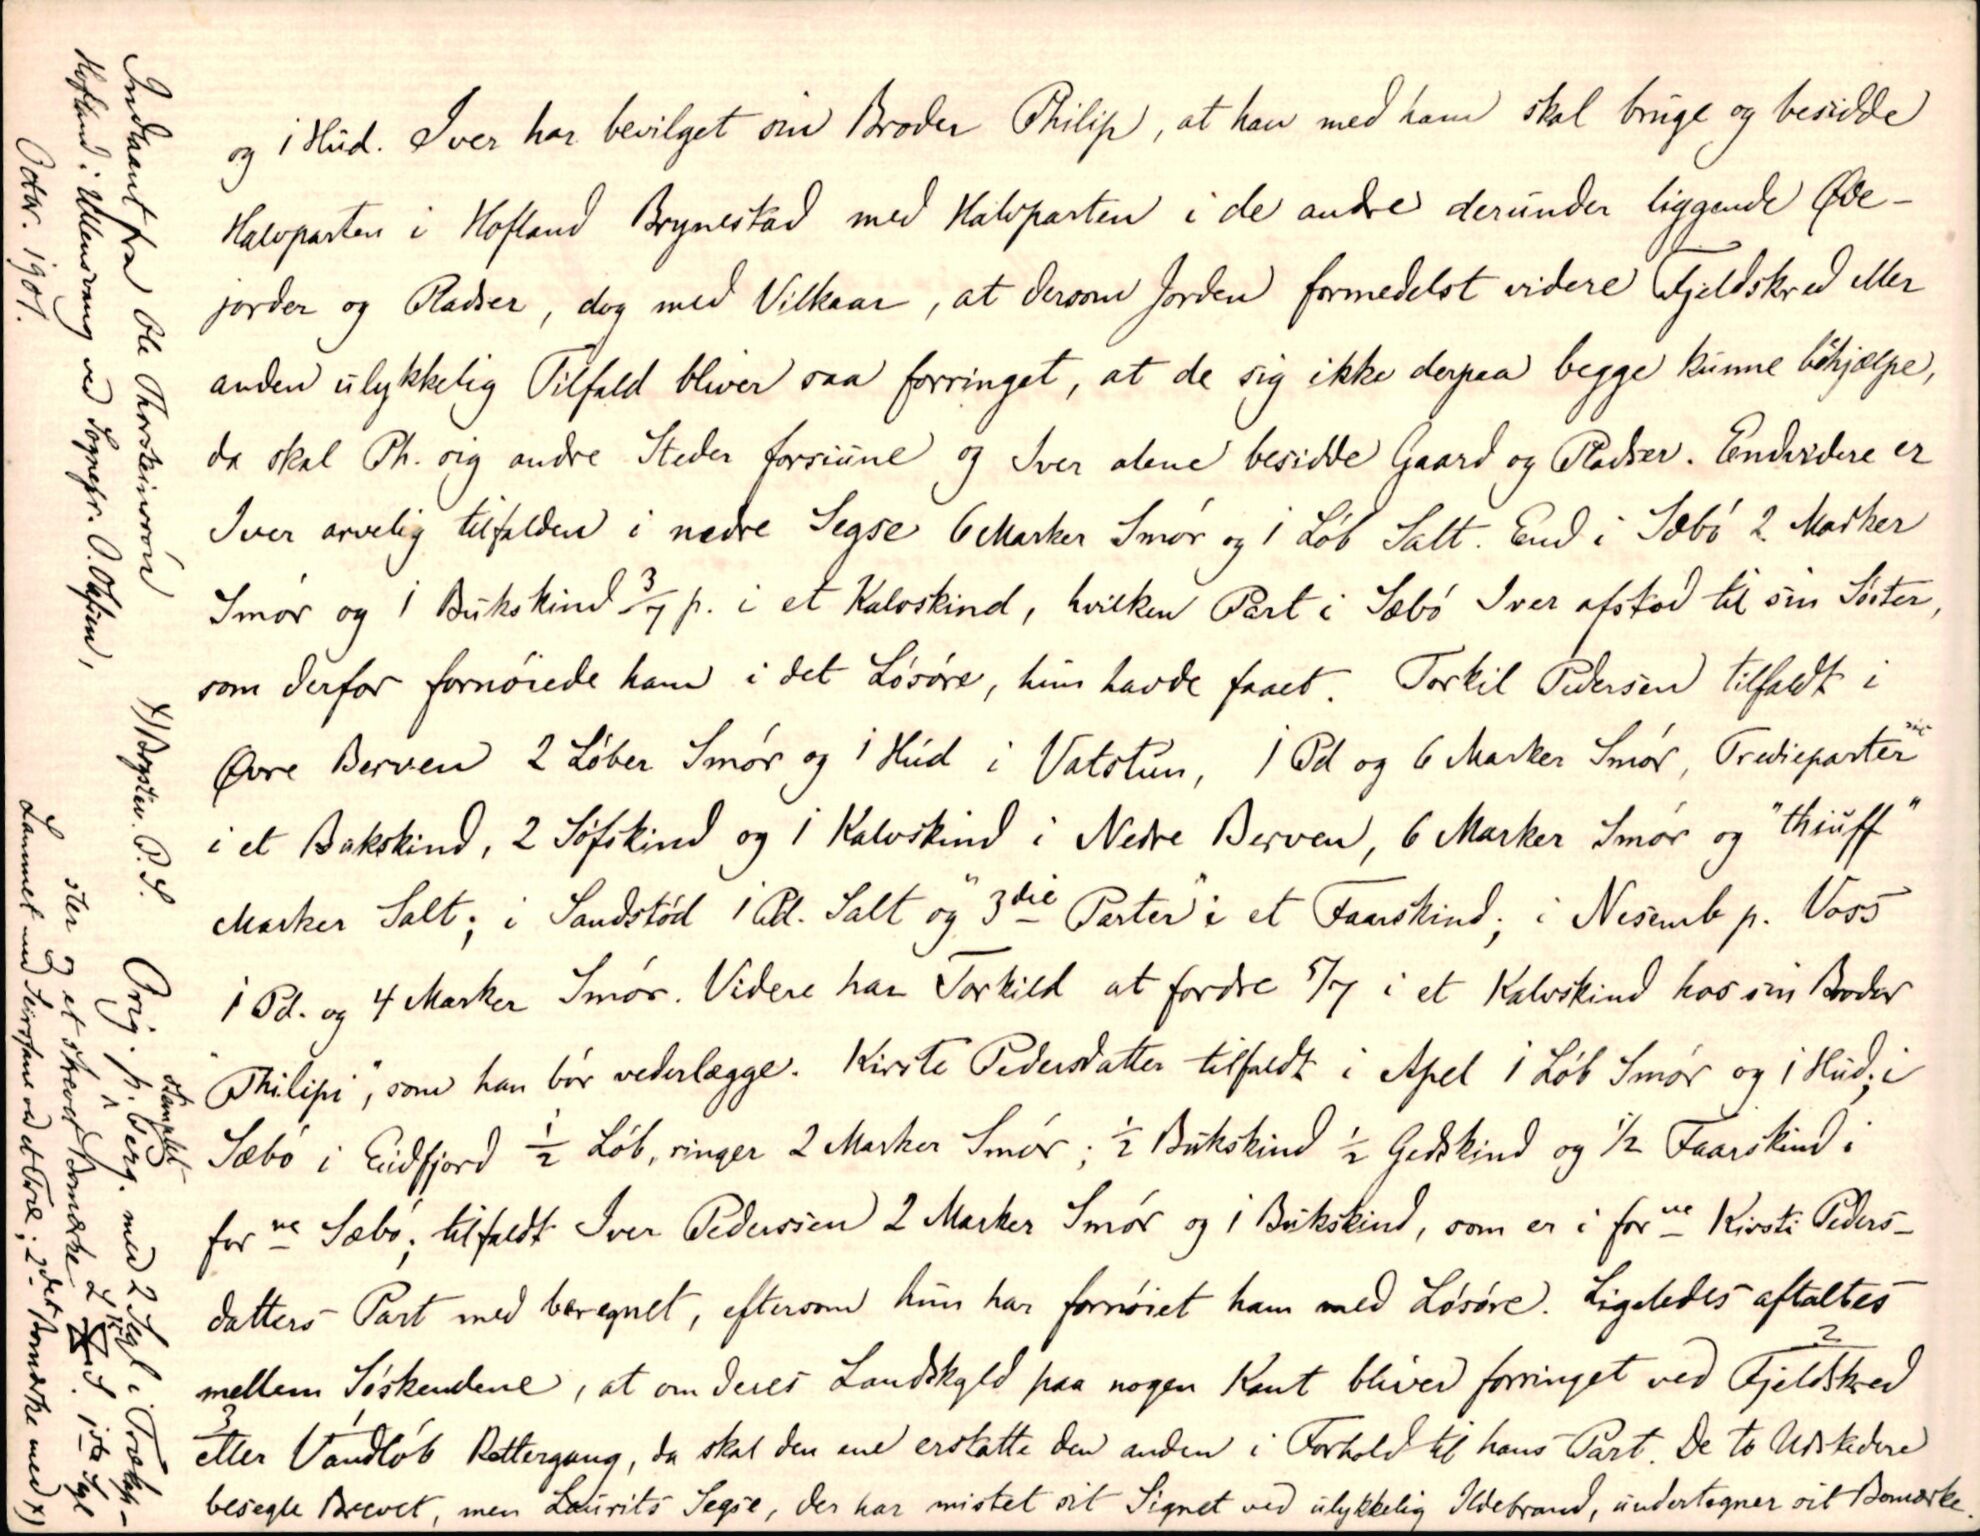 og 1 Hud. Iver har bevilget sin Broder Philip, at han med ham skal bruge og besidde
Halvparten i Hofland Brynestad med Halvparten i de andre derunder liggende Øde-
jorder og Pladser, dog med Vilkaar, at dersom Jorden formedelst videre Fjeldskred eller
anden ulykkelig Tilfald bliver saa forringet, at de sig ikke derpaa begge kunne behjælpe,
da skal Ph. sig andre Steder forsiune og Iver alene besidde Gaard og Pladser. Endvidere er
Iver arvelig tilfalden i nedre Segse 6 Marker Smór og 1 Lób Salt. End i Sæbó 2 Marker
Smór og 1 Bukskind 3/7 p. i et Kalvskind, hvilken Part i Sæbó Iver afstod til sin Sóster,
som derfor fornóiede ham i det Lósóre, hun havde faaet. Torkil Pedersen tilfaldt i
Øvre Berven 2 Lóber Smór og 1 Hud i Vatstun, 1 Pd og 6 Marker Smór, Tredieparter sic
i et Bukskind, 2 Sófskind og 1 Kalvskind i Nedre Berven, 6 Marker Smór og "thiuff"
Marker Salt; i Sandstód 1 Pd. Salt og "3die Parter" i et Faarskind; i Nesemb p. Voss
1 Pd. og 4 Marker Smór. Videre har Torkild at fordre 5/7 i et Kalvskind hos sin Broder
"Philipi", som han bór vederlægge. Kirste Pedersdatter tilfaldt i Apel 1 Lób Smór og 1 Hud; i
Sæbó i Eidfjord 1/2 Lób, ringer 2 Marker Smór; 1/2 Bukskind 1/2 Gedskind og 1/2 Faarskind i
forne Sæbó; tilfaldt Iver Pederssen 2 Marker Smór og 1 Bukskind, som er i forne Kirsti Peders-
datters Part med beregnet, eftersom hun har fornóiet ham med Lósóre. Ligeledes aftaltes
mellem Sóskendene, at om deres Landskyld paa nogen Kant bliver forringet ved Fjeldskred 2
3 eller Vandlób Rettergang, da skal den ene erstatte den anden i Forhold til hans Part. De to Udskedere
besegle Brevet, men Laurits Segse, der har mistet sit Signet ved ulykkelig Ildebrand, undertegner sit Bomærke.
Indlaant fra Ole Thorsteinssón
Hofland i Ullensvang ved Sognepr. O. Olafsen,
Octbr. 1901.
x) Brystev. P. S.
Orig. p. stemplet Perg. med 2 Segl i Træhyl-
ster og et skrevet Bomærke L S. 1ste Segl
Lammet med Seirsfane ved et Træ; 2det Bomærke med x)